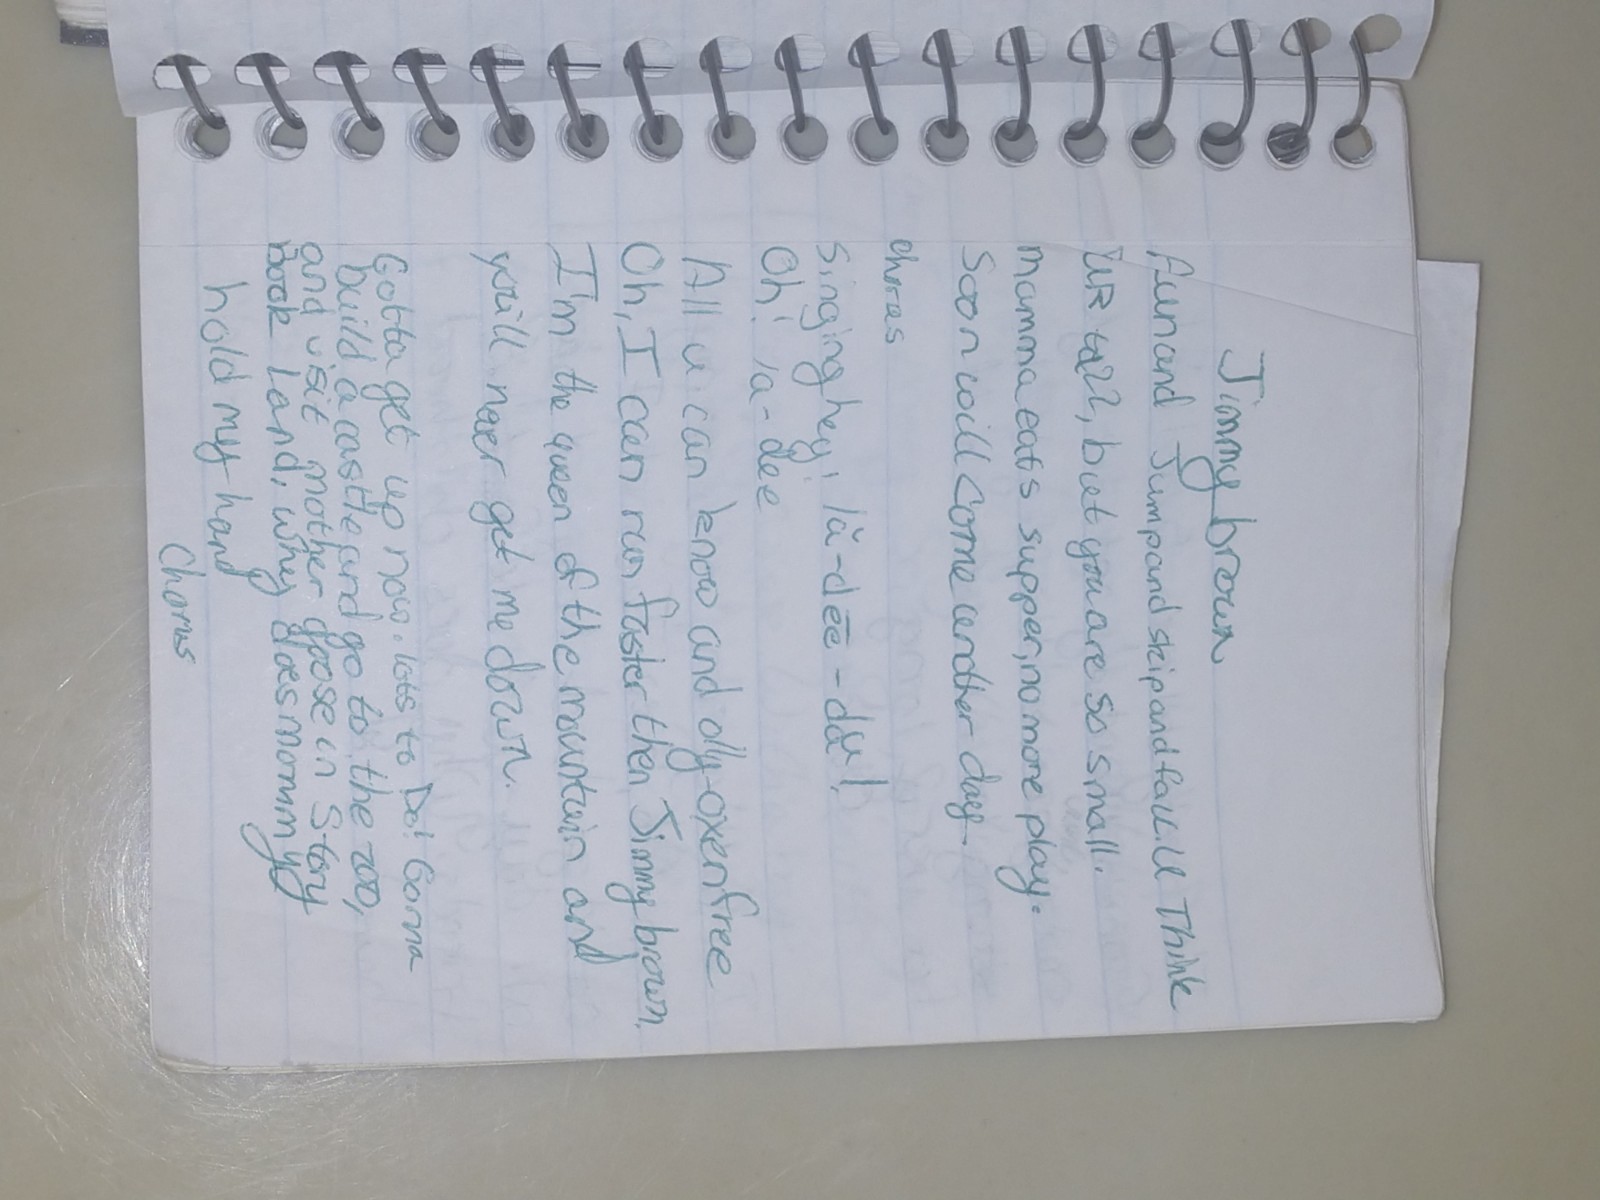 Jimmy brown
Run and Jump and skip and fall. U Think
UR tall, but you are so small.
mamma eats supper, no more play.
Soon will Come another day.
chorus
Singing hey! là-dēē-da!
Oh! la-dee
All u can know and olly-oxenfree
Oh, I can run faster then Jimmy brown.
I'm the queen of the mountain and
you'll never get me down.
Gotta get up now. lots to Do! Gonna
build a castle and go to the zoo,
and visit mother goose in Story
Book land, why does mommy
hold my hand
Chorus